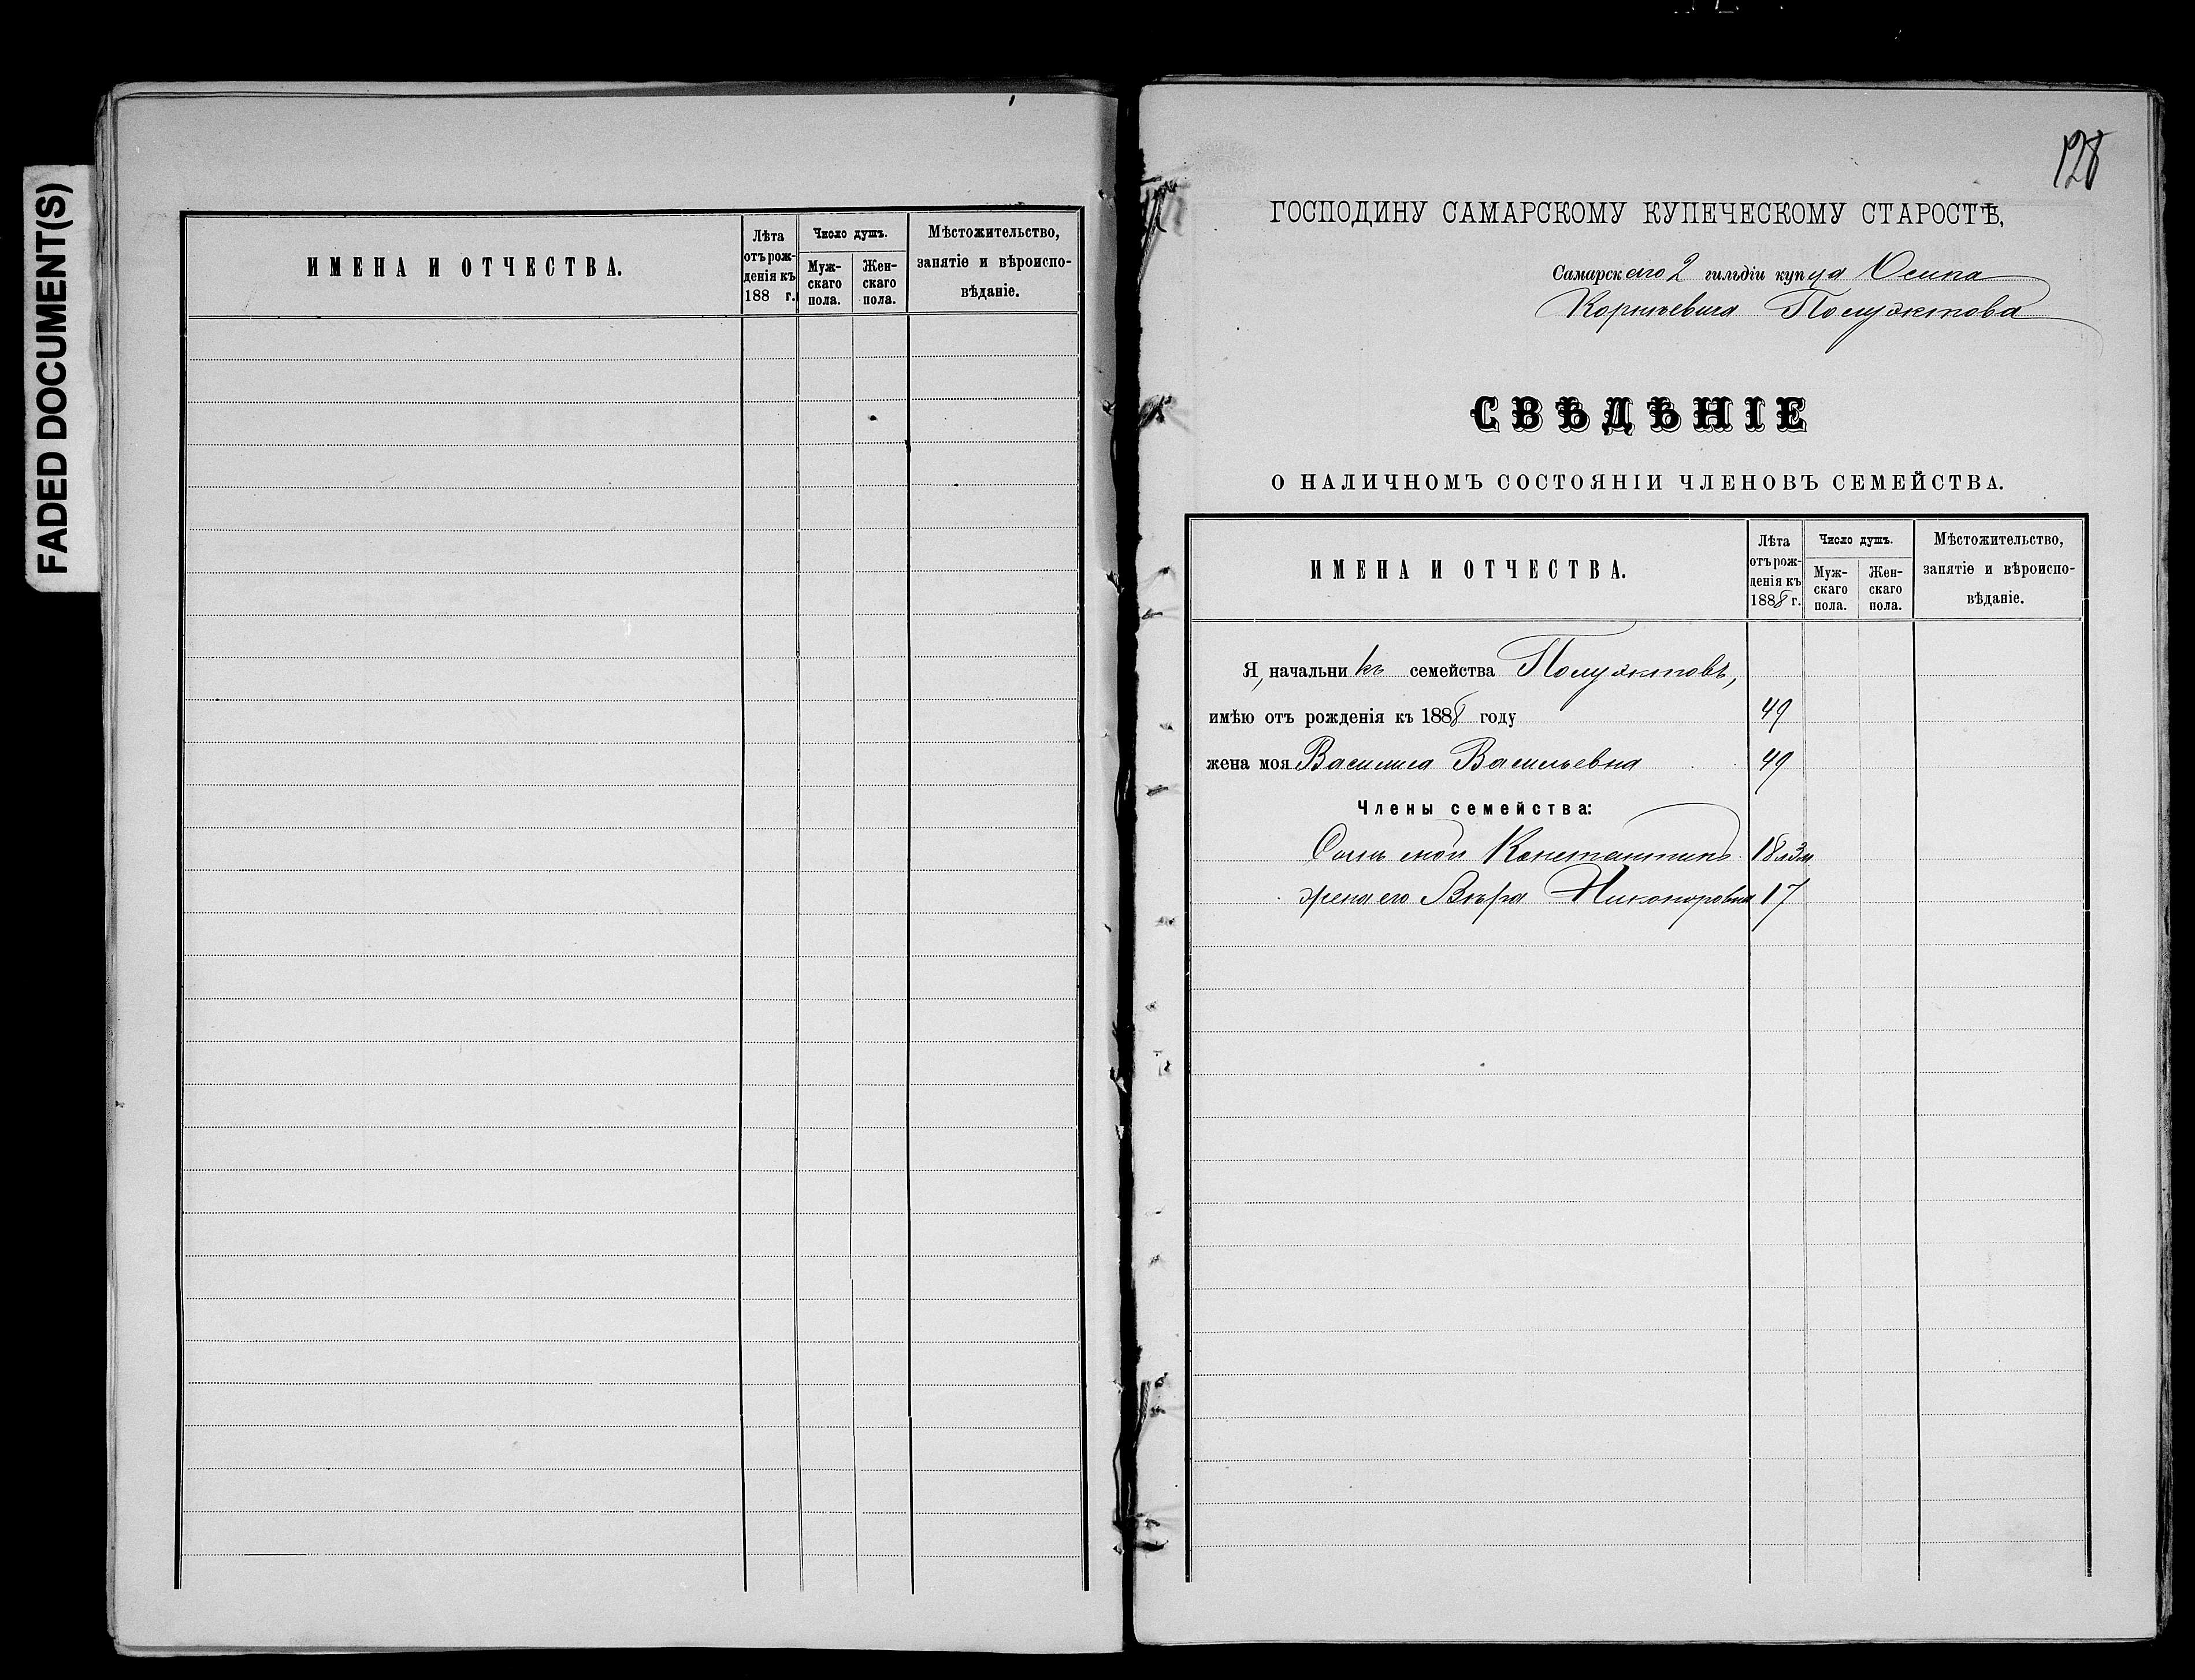 FADED DOCUMENT(S)
ИМЕНА И ОТЧЕСТВА.
Лѣта отъ рож-
денія къ
188 г.
Число душъ.
Муж-
скаго
пола.
Жен-
скаго
пола.
Мѣстожительство,
занятіе и вѣроиспо-
вѣданіе.
128
ГОСПОДИНУ САМАРСКОМУ КУПЕЧЕСКОМУ СТАРОСТѢ,
Самарскаго 2 гильдіи купца Осипа
Корнѣевича Полуэктова
СВѢДѢНІЕ
О НАЛИЧНОМЪ СОСТОЯНІИ ЧЛЕНОВЪ СЕМЕЙСТВА.
ИМЕНА И ОТЧЕСТВА.
Лѣта
отъ рож-
денія къ
1888 г.
Число душъ.
Муж-
скаго
пола.
Жен-
скаго
пола.
Мѣстожительство,
занятіе и вѣроиспо-
вѣданіе.
Я, начальникъ семейства Полуэктовъ,
имѣю отъ рожденія къ 1888 году 49
жена моя Василиса Васильевна 49
Члены семейства:
Сынъ мой Константинъ 18 л 3 м
жена его Вѣра Никоноровна 17